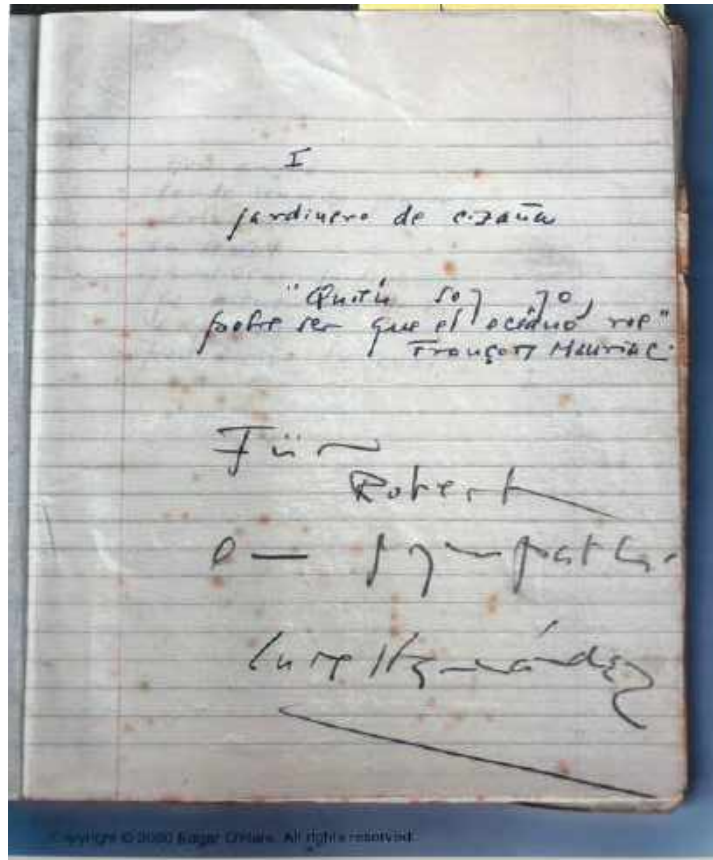 I
jardinero de cizaña
"Quién soy yo,
pobre ser que el océano roe"
François Mauriac.
Für
Robert
Luis Hernández
Copyright © 2020 Edgar O'Hara. All rights reserved.